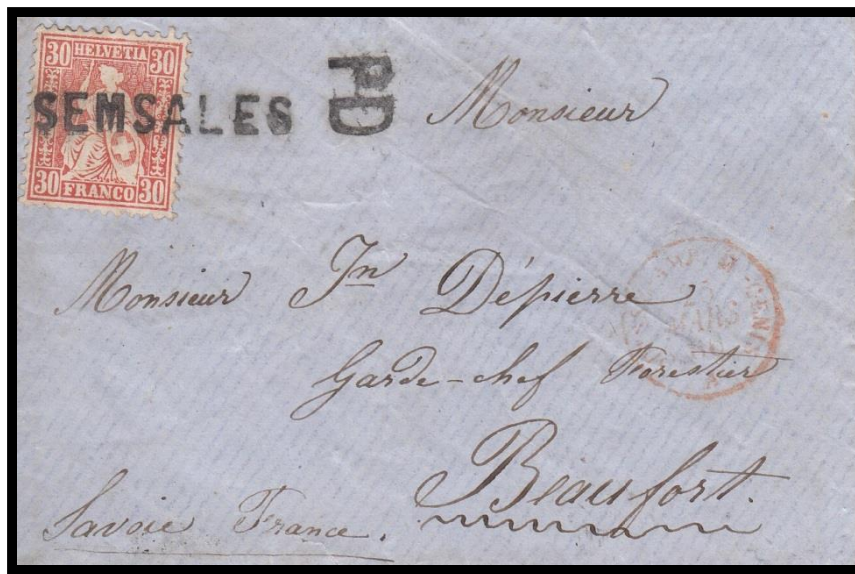 30 HELVETIA 30
SEMSALES PD
30 FRANCO 30
Monsieur
Monsieur Jn Dépierre
Garde-chef Forestier
Beaufort.
Savoie France.
MARS